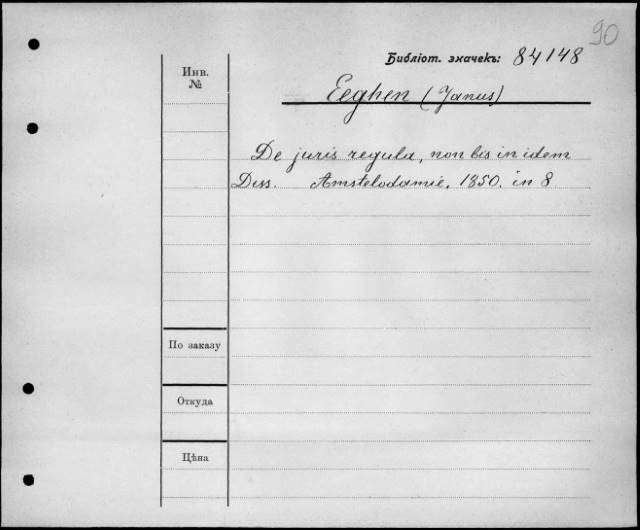 90
Библіот. значекъ: 84148
Инв.
№
Eeghen (Janus)
De juris regula, non bis in idem
Diss. Amstelodamie, 1850. in 8
По заказу
Откуда
Цѣна